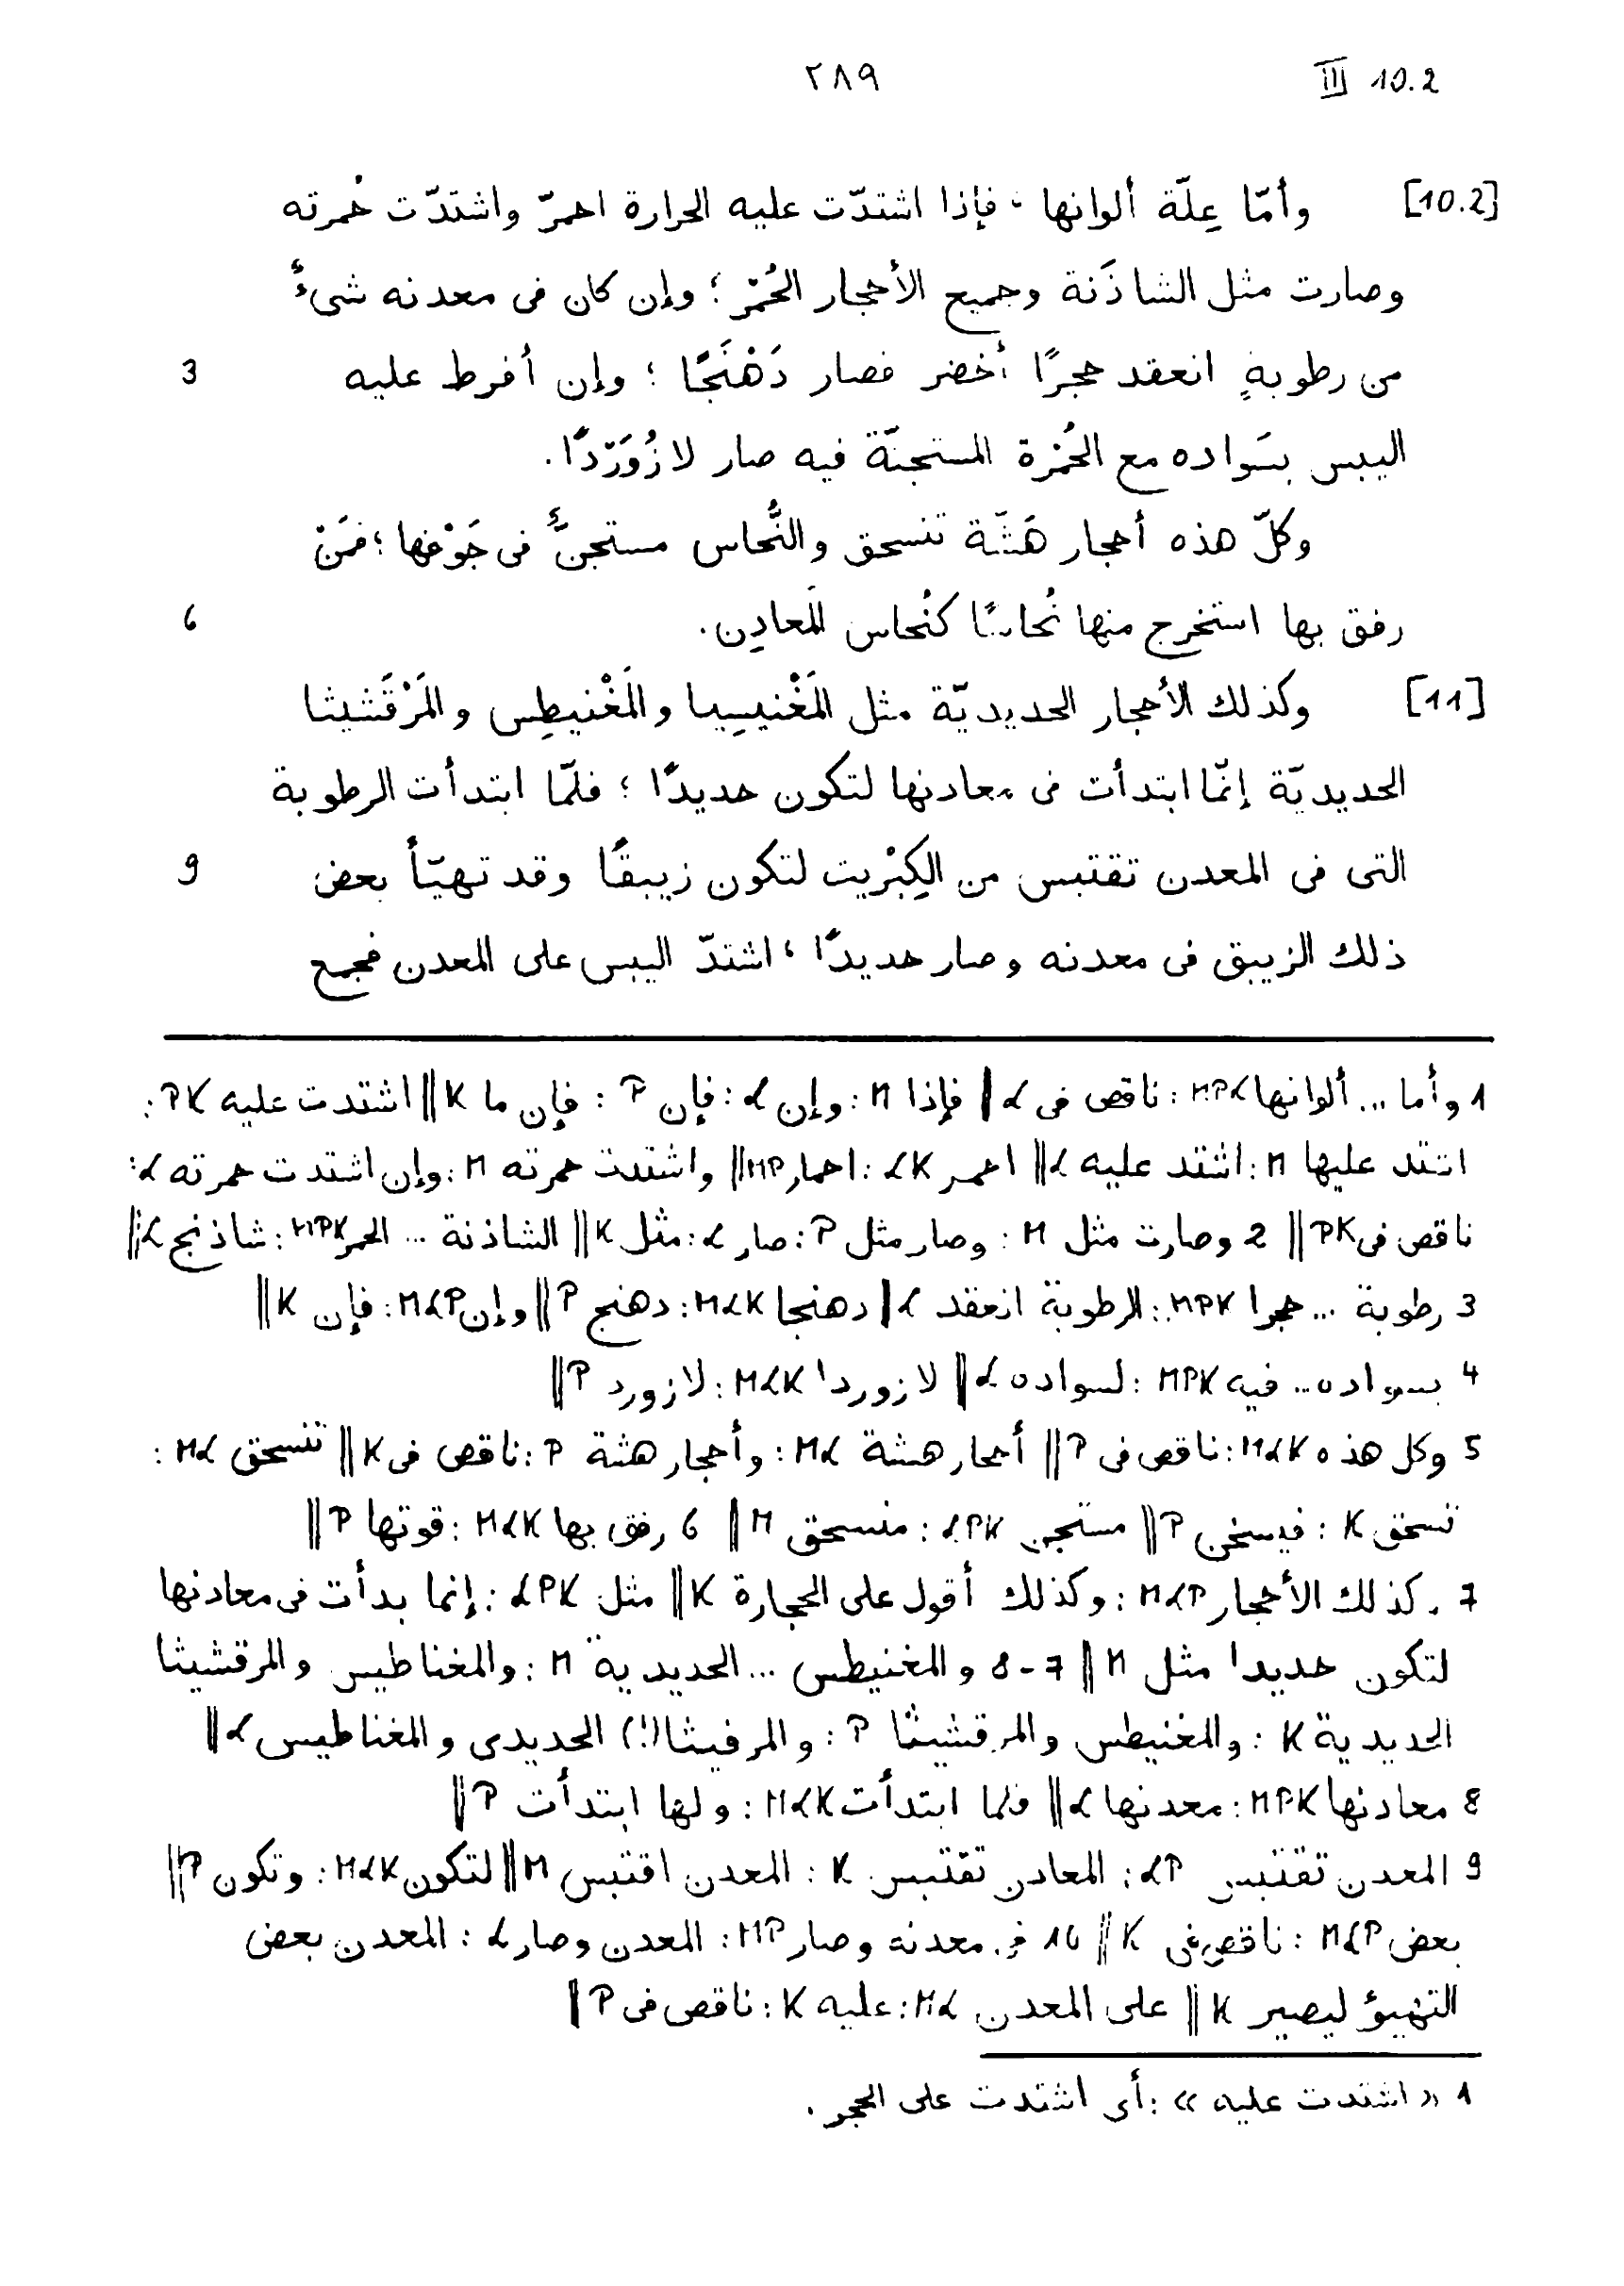 ٢٨٩ III 10.2
[10.2] وأمّا عِلّة ألوانها ؛ فإذا اشتدّت عليه الحرارة احمرّ واشتدّت حُمرته
وصارت مثل الشاذَنة وجميع الأحجار الحُمْر ؛ وإن كان فى معدنه شىءٌ
من رطوبةٍ انعقد حجرًا أخضر فصار دَهْنَجًا ؛ وإن أفرط عليه 3
اليبس بسَواده مع الحُمْرة المستجنّة فيه صار لازُوَرّدًا.
وكلّ هذه أحجار هَشّة تنسحق والنُّحاس مستجنٌّ فى جَوْفها ؛ فمَنْ
رفق بها استخرج منها نُحاسًا كنُحاس المَعادِن. 6
[11] وكذلك الأحجار الحديديّة مثل المَغْنيسِيا والمَغْنيطِس والمَرْقَشيثا
الحديديّة إنّما ابتدأت فى معادنها لتكون حديدًا ؛ فلمّا ابتدأت الرطوبة
التى فى المعدن تقتبس من الكِبْريت لتكون زيبقًا وقد تهيّأ بعض 9
ذلك الزيبق فى معدنه وصار حديدًا ؛ اشتدّ اليبس على المعدن فجمع
1 وأما ... ألوانها MPK : ناقص فى L ‖ فإذا M : وإن L : فإن P : فإن ما K ‖ اشتدت عليه PK :
اشتد عليها M : اشتد عليه L ‖ احمر LK : احمار MP ‖ واشتدت حمرته M : وإن اشتدت حمرته L :
ناقص فى PK ‖ 2 وصارت مثل M : وصار مثل P : صار L : مثل K ‖ الشاذنة ... الحمر MPK : شاذنج L ‖
3 رطوبة ... حجرا MPK : الرطوبة انعقد L ‖ دهنجا MLK : دهنج P ‖ وإن MLP : فإن K ‖
4 بسواده ... فيه MPK : لسواده L ‖ لازوردا MLK : لازورد P ‖
5 وكل هذه MLK : ناقص فى P ‖ أحجار هشة ML : وأحجار هشة P : ناقص فى K ‖ تنسحق ML :
تسحق K : فيسخن P ‖ مستجن LPK : منسحق M ‖ 6 رفق بها MLK : قوتها P ‖
7 وكذلك الأحجار MLP : وكذلك أقول على الحجارة K ‖ مثل LPK : إنما بدأت فى معادنها
لتكون حديدا مثل M ‖ 7-8 والمغنيطس ... الحديدية M : والمغناطيس والمرقشيثا
الحديدية K : والمغنيطس والمرقشيثا P : والمرفيشا (!) الحديدى والمغناطيس L ‖
8 معادنها MPK : معدنها L ‖ فلما ابتدأت MLK : ولها ابتدأت P ‖
9 المعدن تقتبس LP : المعادن تقتبس K : المعدن اقتبس M ‖ لتكون MLK : وتكون P ‖
بعض MLP : ناقص فى K ‖ 10 فى معدنه وصار MP : المعدن وصار L : المعدن بعض
التهيؤ ليصير K ‖ على المعدن ML : عليه K : ناقص فى P ‖
1 « اشتدت عليه » : أى اشتدت على الحجر .